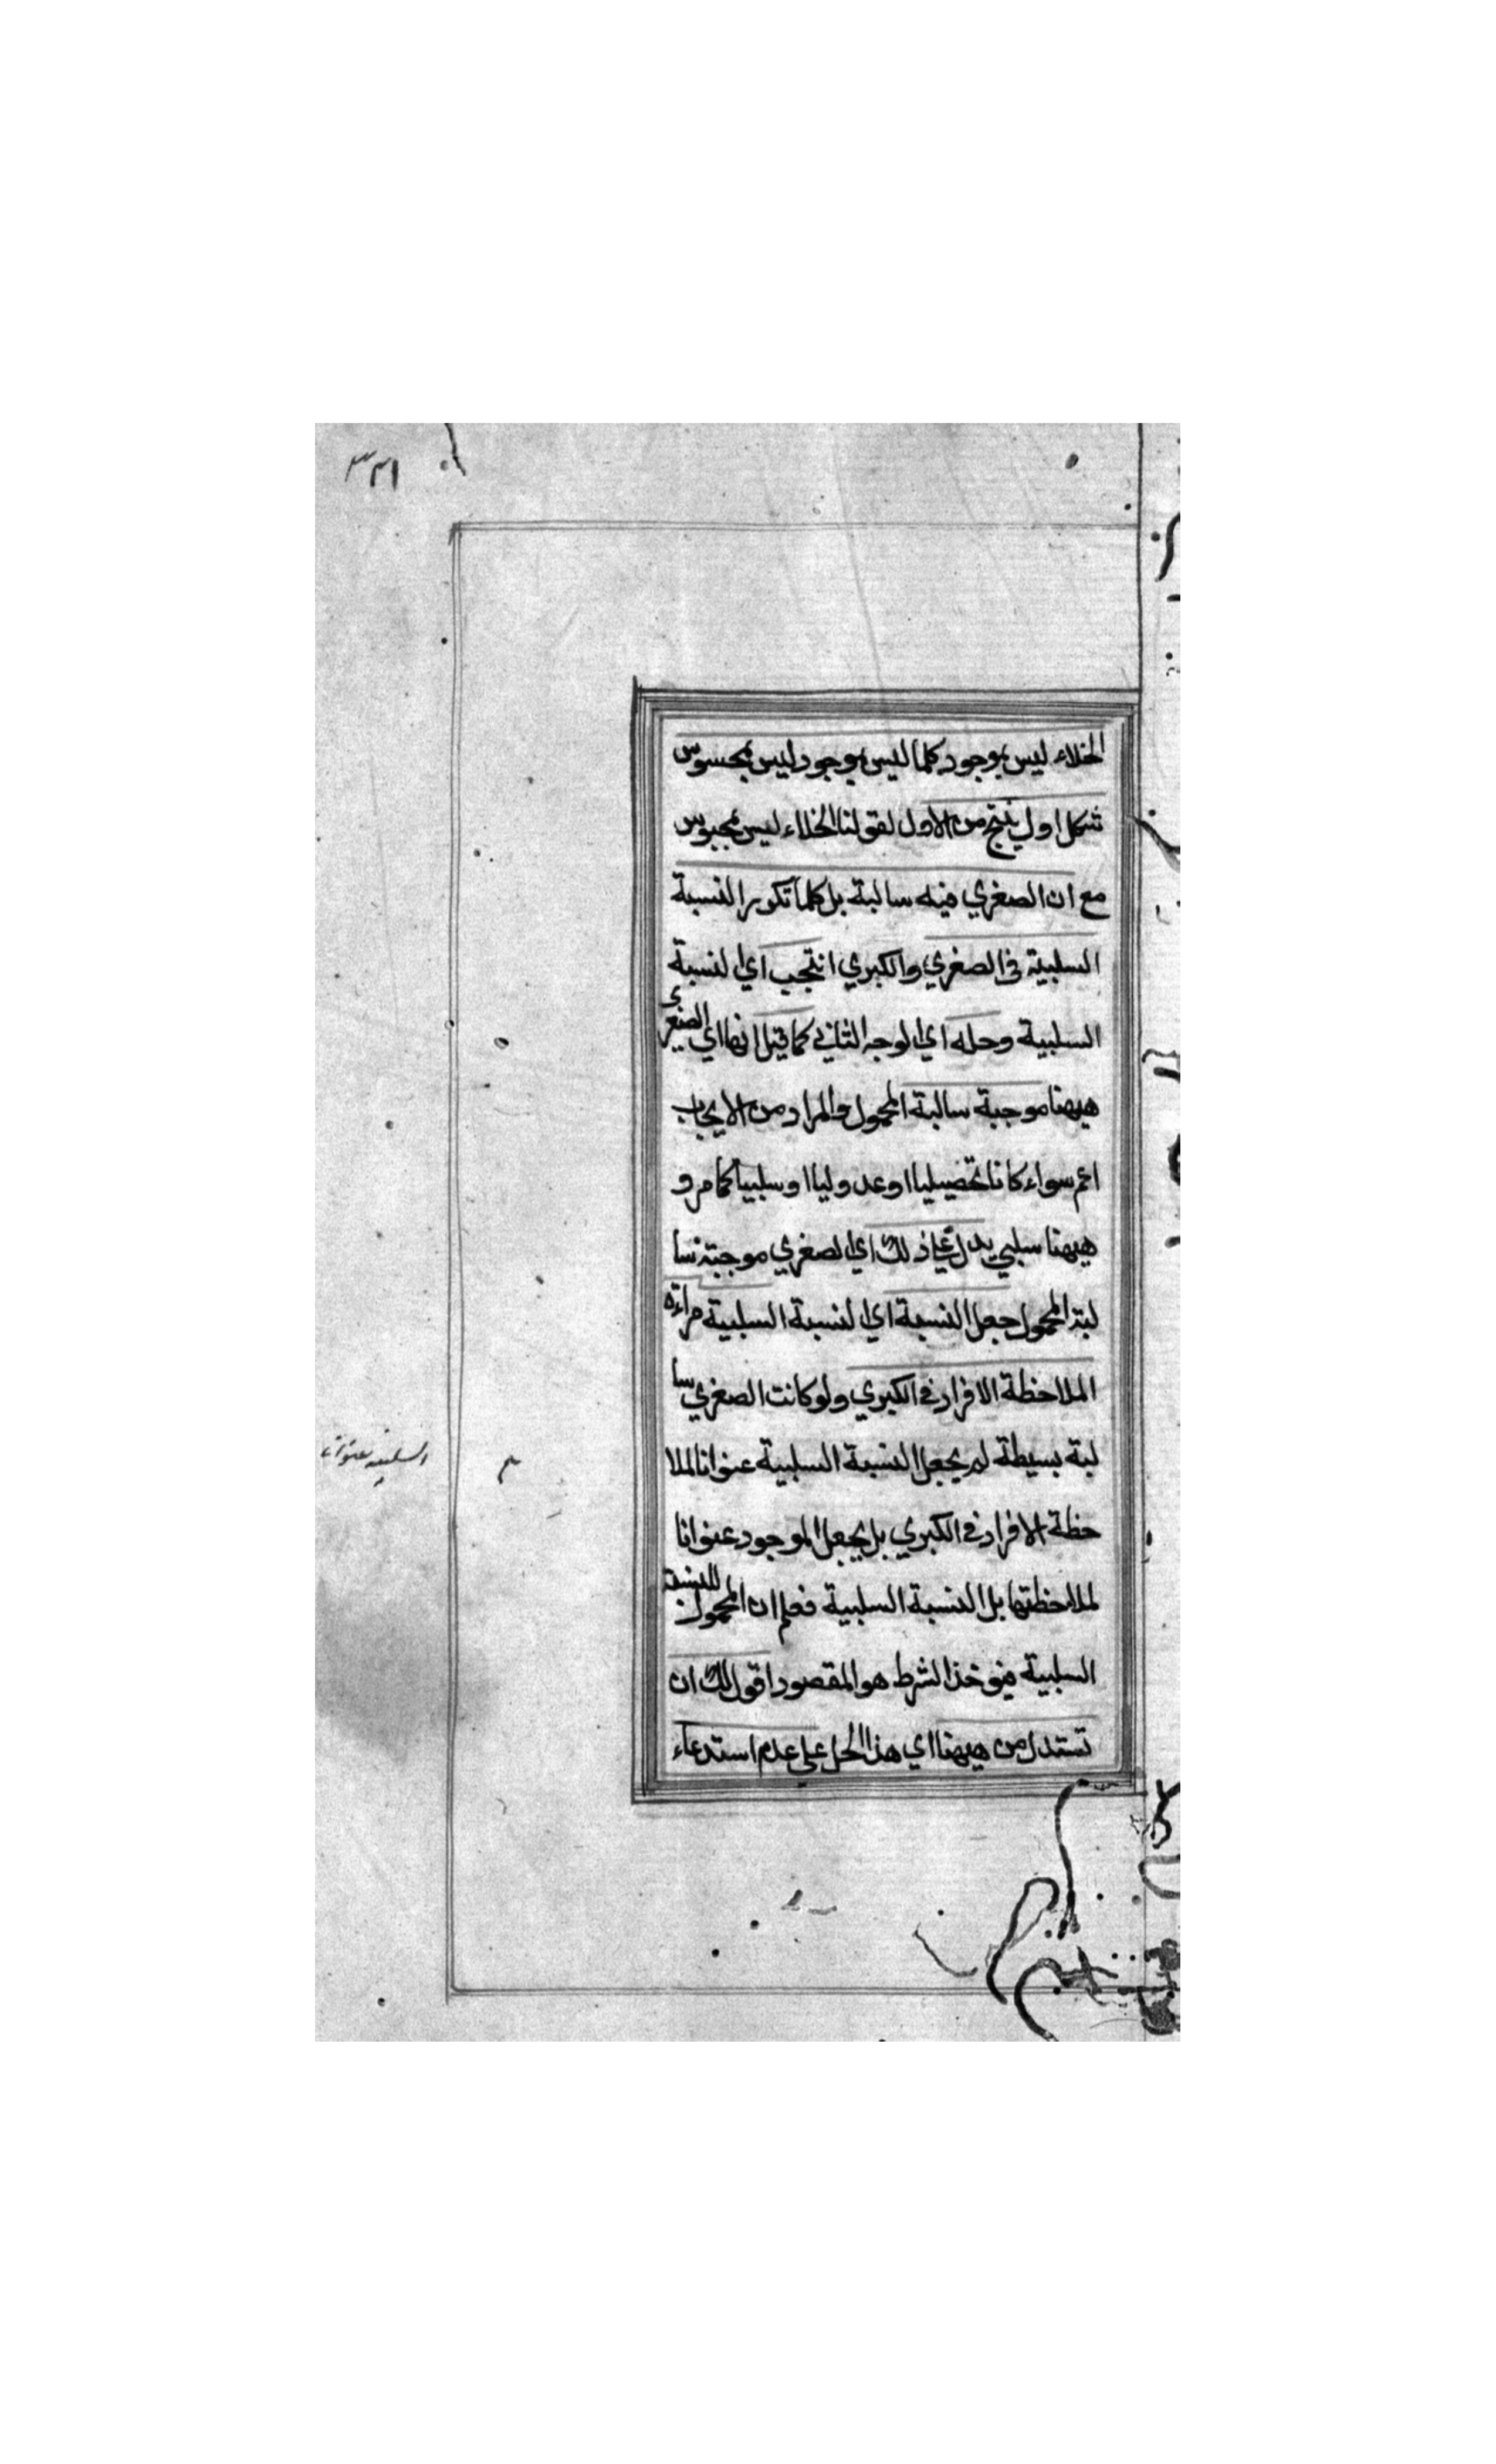 الخلاء ليس بموجود كلما ليس بموجود ليس بمحسوس
شكل اول ينتج من الاول لقولنا الخلاء ليس بمحسوس
مع ان الصغري فيه سالبة بل كلما تكرر النسبة
السلبية في الصغري والكبري انتجب اي النسبة
السلبية وحله اي الوجه الثاني كما قيل انها اي الصغرى
هيهنا موجبة سالبة المحمول والمراد من الايجاب
اعم سواء كانا تحصيليا او عدوليا او سلبيا كما مر و
هيهنا سلبي يدل على ذلك اي الصغري موجبة سا
لبة المحمول جعل النسبة اي النسبة السلبية مراءة
الملاحظة الافراد في الكبري ولو كانت الصغري سا
لبة بسيطة لم يجعل النسبة السلبية عنوانا لملا
حظة الافراد في الكبري بل يجعل الموجود عنوانا
لملاحظتها بل النسبة السلبية فعلم ان المحمول للنسبة
السلبية فيوخذ الشرط هو المقصود اقول لك ان
تستدل من هيهنا اي هذا الحل علي عدم استدعاء
السلبية عنوانا